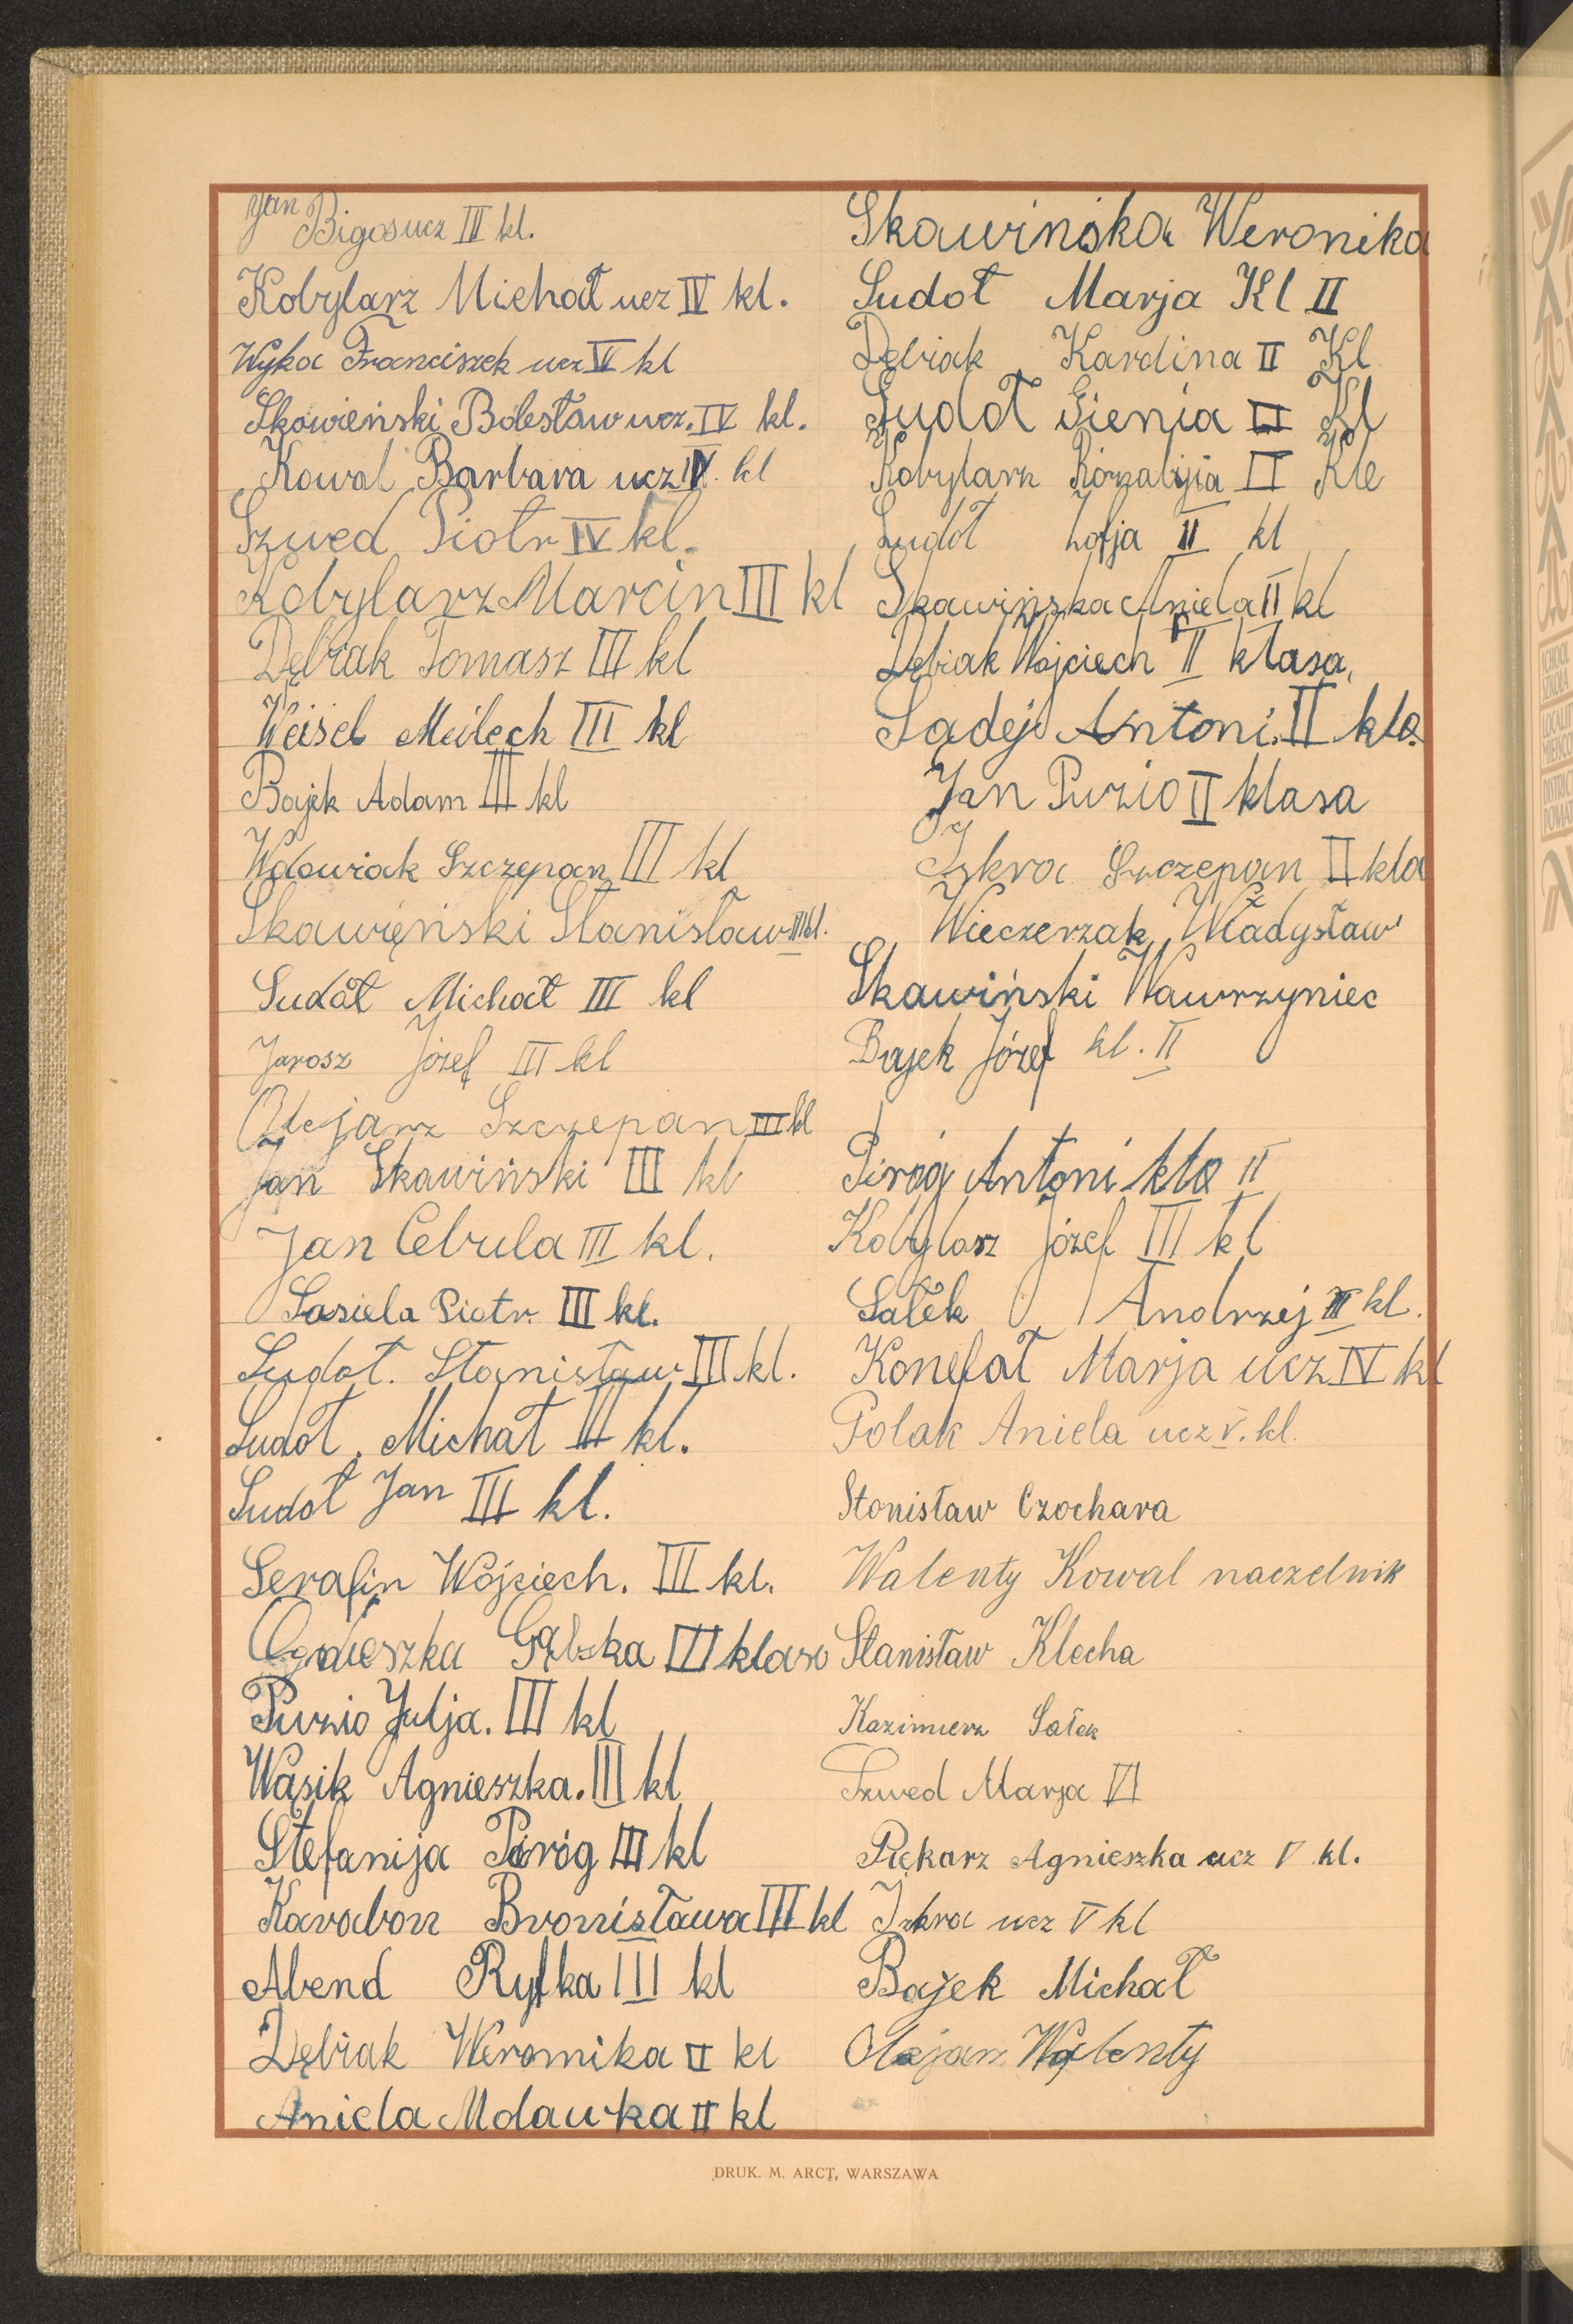 Jan Bigos ucz III kl.
Kobylarz Michał ucz IV kl.
Wyka Franciszek ucz IV kl
Skowieński Bolesław ucz. IV kl.
Kowal Barbara ucz IV. kl
Szwed Piotr IV kl.
Kobylarz Marcin III kl
Dębiak Tomasz III kl
Weisel Meilech III kl
Bajek Adam III kl
Wdowiak Szczepan III kl
Skawięński Stanisław III kl.
Sudoł Michał III kl
Jarosz Józef III kl
Olejarz Szczepan III kl
Jan Skawiński III kl
Jan Cebula III kl.
Sasiela Piotr. III kl.
Sudoł. Stanisław III kl.
Sudoł. Michał III kl.
Sudoł Jan III kl.
Serafin Wójciech. III kl.
Agnieszka Gąbka III klasa
Puzio Julja. III kl
Wąsik Agnieszka. III kl
Stefanija Piróg III kl
Karabon Bronisława III kl
Abend Ryfka III kl
Dębiak Weronika II kl
Aniela Mdawka II kl
Skawinśka Weronika
Sudoł Marja Kl II
Dębiak Karolina II Kl
Sudoł Gienia II Kl
Kobylarz Rózalijia II Kle
Sudoł Zofja II kl
Skawińska Aniela II kl
Dębiak Wojciech II klasa,
Sadej Antoni. II kla.
Jan Puzio II klasa
Iskra Szczepan II kla
Wieczerzak Władysław
Skawiński Wawrzyniec
Bajek Józef kl. II
Piróg Antoni kla II
Kobylarz Józef III kl
Sałek Andrzej III kl.
Konefał Marja ucz IV kl
Polak Aniela ucz V. kl.
Stanisław Czochara
Walenty Kowal naczelnik
Stanisław Klecha
Kazimierz Sałek
Szwed Marja VI
Piękarz Agnieszka ucz V kl.
Iskra ucz V kl
Bajek Michał
Olejarz Walenty
DRUK. M. ARCT, WARSZAWA